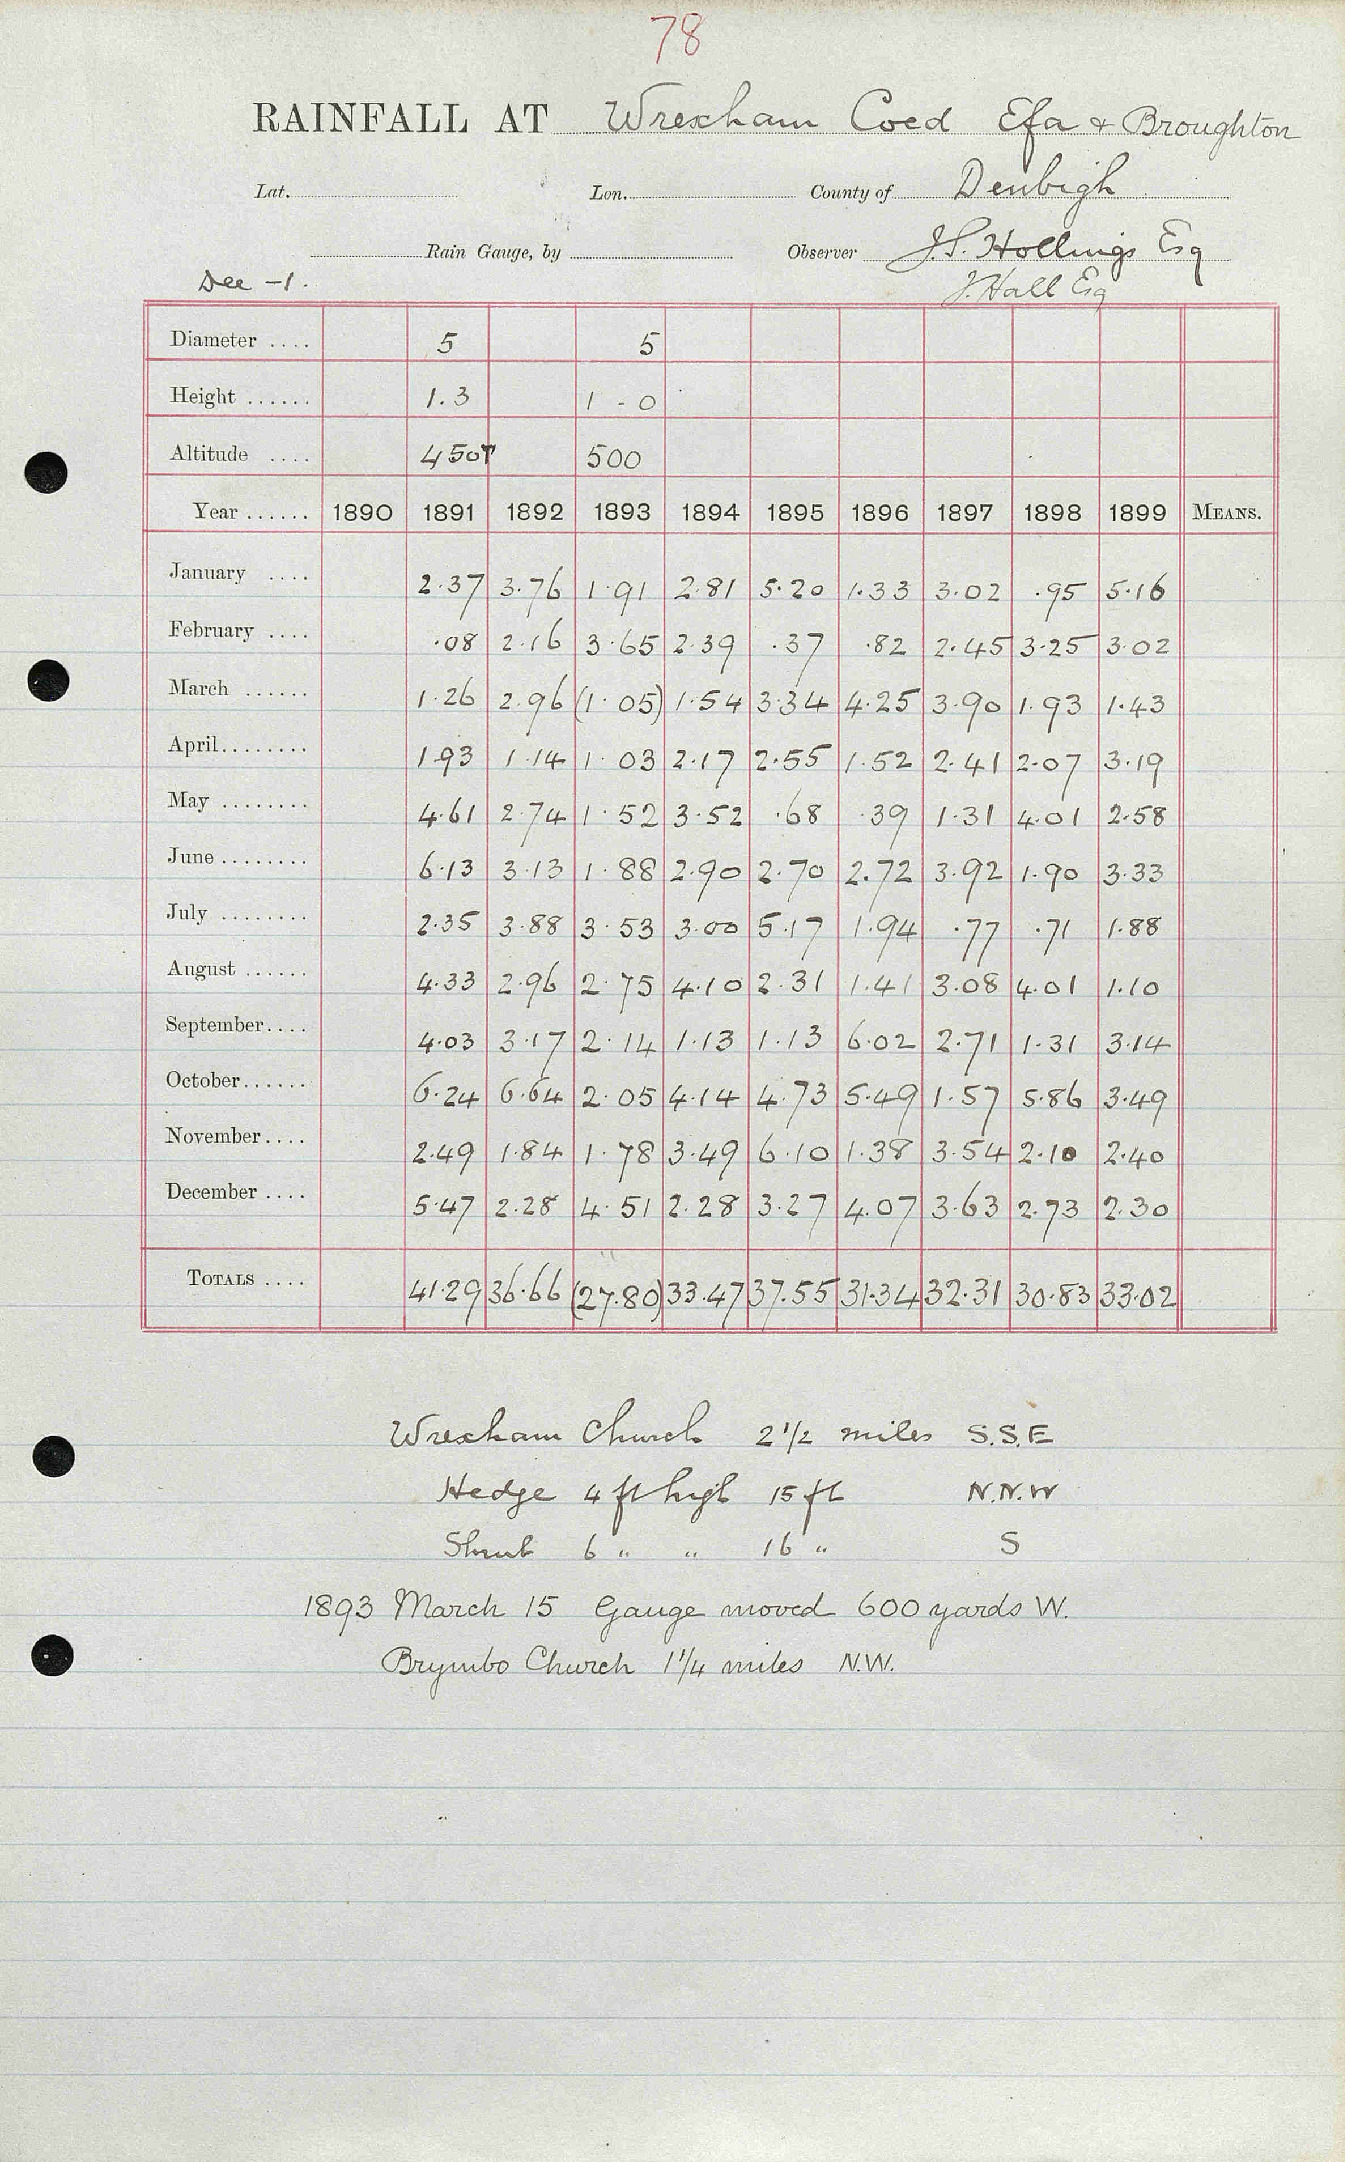 78
RAINFALL AT Wrexham Coed Efa & Broughton
Lat. Lon. County of Denbigh
Rain Gauge, by Observer J.S. Hollings Esq
Dee -1. J. Hall Esq
Diameter .... 5 5
Height ...... 1.3 1 - 0
Altitude .... 450T 500
Year ...... 1890 1891 1892 1893 1894 1895 1896 1897 1898 1899 MEANS.
January .... 2.37 3.76 1.91 2.81 5.20 1.33 3.02 .95 5.16
February .... .08 2.16 3.65 2.39 .37 .82 2.45 3.25 3.02
March ...... 1.26 2.96 (1.05) 1.54 3.34 4.25 3.90 1.93 1.43
April........ 1.93 1.14 1.03 2.17 2.55 1.52 2.41 2.07 3.19
May ........ 4.61 2.74 1.52 3.52 .68 .39 1.31 4.01 2.58
June ........ 6.13 3.13 1.88 2.90 2.70 2.72 3.92 1.90 3.33
July ........ 2.35 3.88 3.53 3.00 5.17 1.94 .77 .71 1.88
August ...... 4.33 2.96 2.75 4.10 2.31 1.41 3.08 4.01 1.10
September.... 4.03 3.17 2.14 1.13 1.13 6.02 2.71 1.31 3.14
October...... 6.24 6.64 2.05 4.14 4.73 5.49 1.57 5.86 3.49
November.... 2.49 1.84 1.78 3.49 6.10 1.38 3.54 2.10 2.40
December .... 5.47 2.28 4.51 2.28 3.27 4.07 3.63 2.73 2.30
TOTALS .... 41.29 36.66 (27.80) 33.47 37.55 31.34 32.31 30.83 33.02
Wrexham Church 2 1/2 miles S.S.E
Hedge 4 ft high 15 ft N.N.W
Shrub 6 " " 16 " S
1893 March 15 Gauge moved 600 yards W.
Brymbo Church 1 1/4 miles N.W.